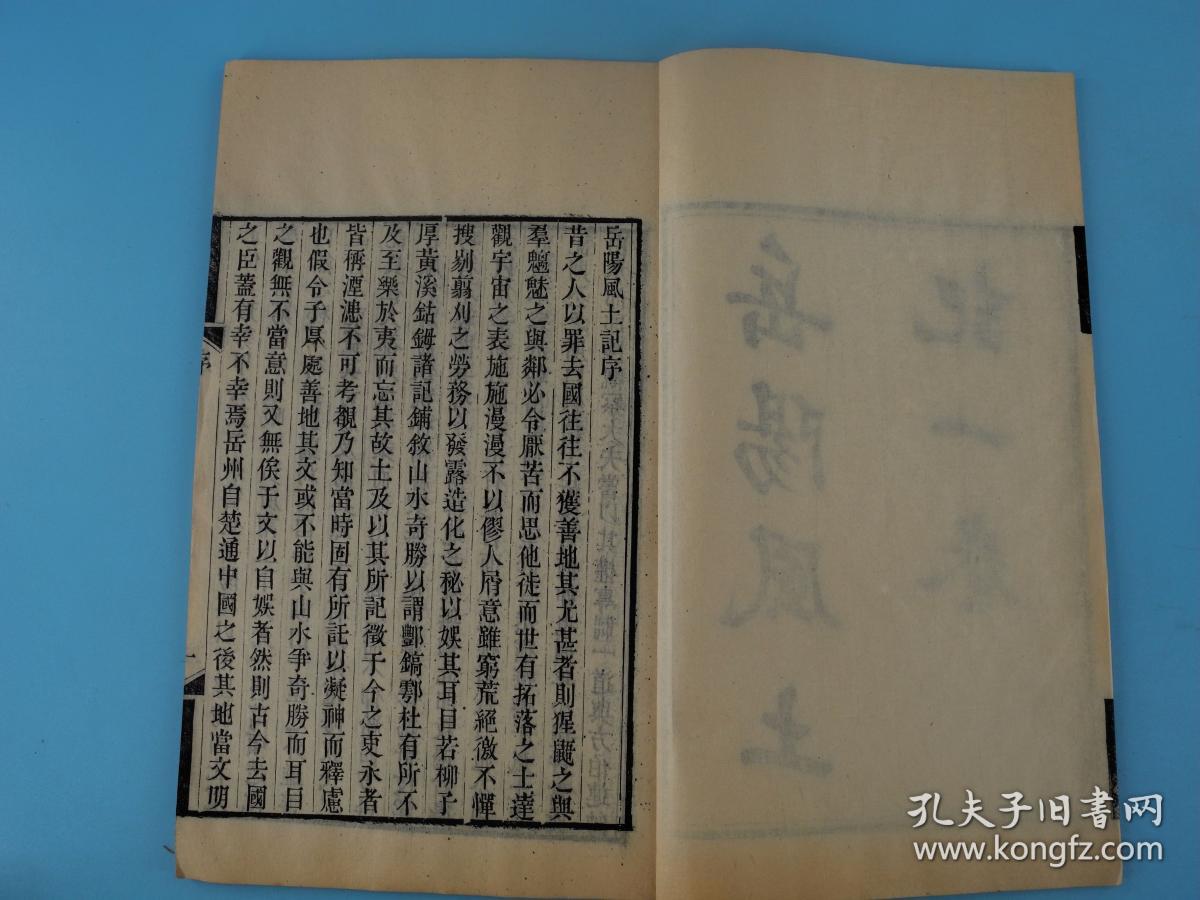 岳陽風土記序
昔之人以罪去國往往不獲善地其尤甚者則猩鼯之與
羣魑魅之與鄰必令厭苦而思他徙而世有拓落之士達
觀宇宙之表施施漫漫不以僇人屑意雖窮荒絕徼不憚
搜剔翦刈之勞務以發露造化之秘以娛其耳目若柳子
厚黃溪鈷鉧諸記鋪敘山水奇勝以謂酆鎬鄠杜有所不
及至樂於夷而忘其故土及以其所記徵于今之吏永者
皆稱湮漶不可考覩乃知當時固有所託以凝神而釋慮
也假令子厚處善地其文或不能與山水爭奇勝而耳目
之觀無不當意則又無俟于文以自娛者然則古今去國
之臣蓋有幸不幸焉岳州自楚通中國之後其地當文明
序
一
岳陽風土
記一卷
孔夫子旧书网
www.kongfz.com